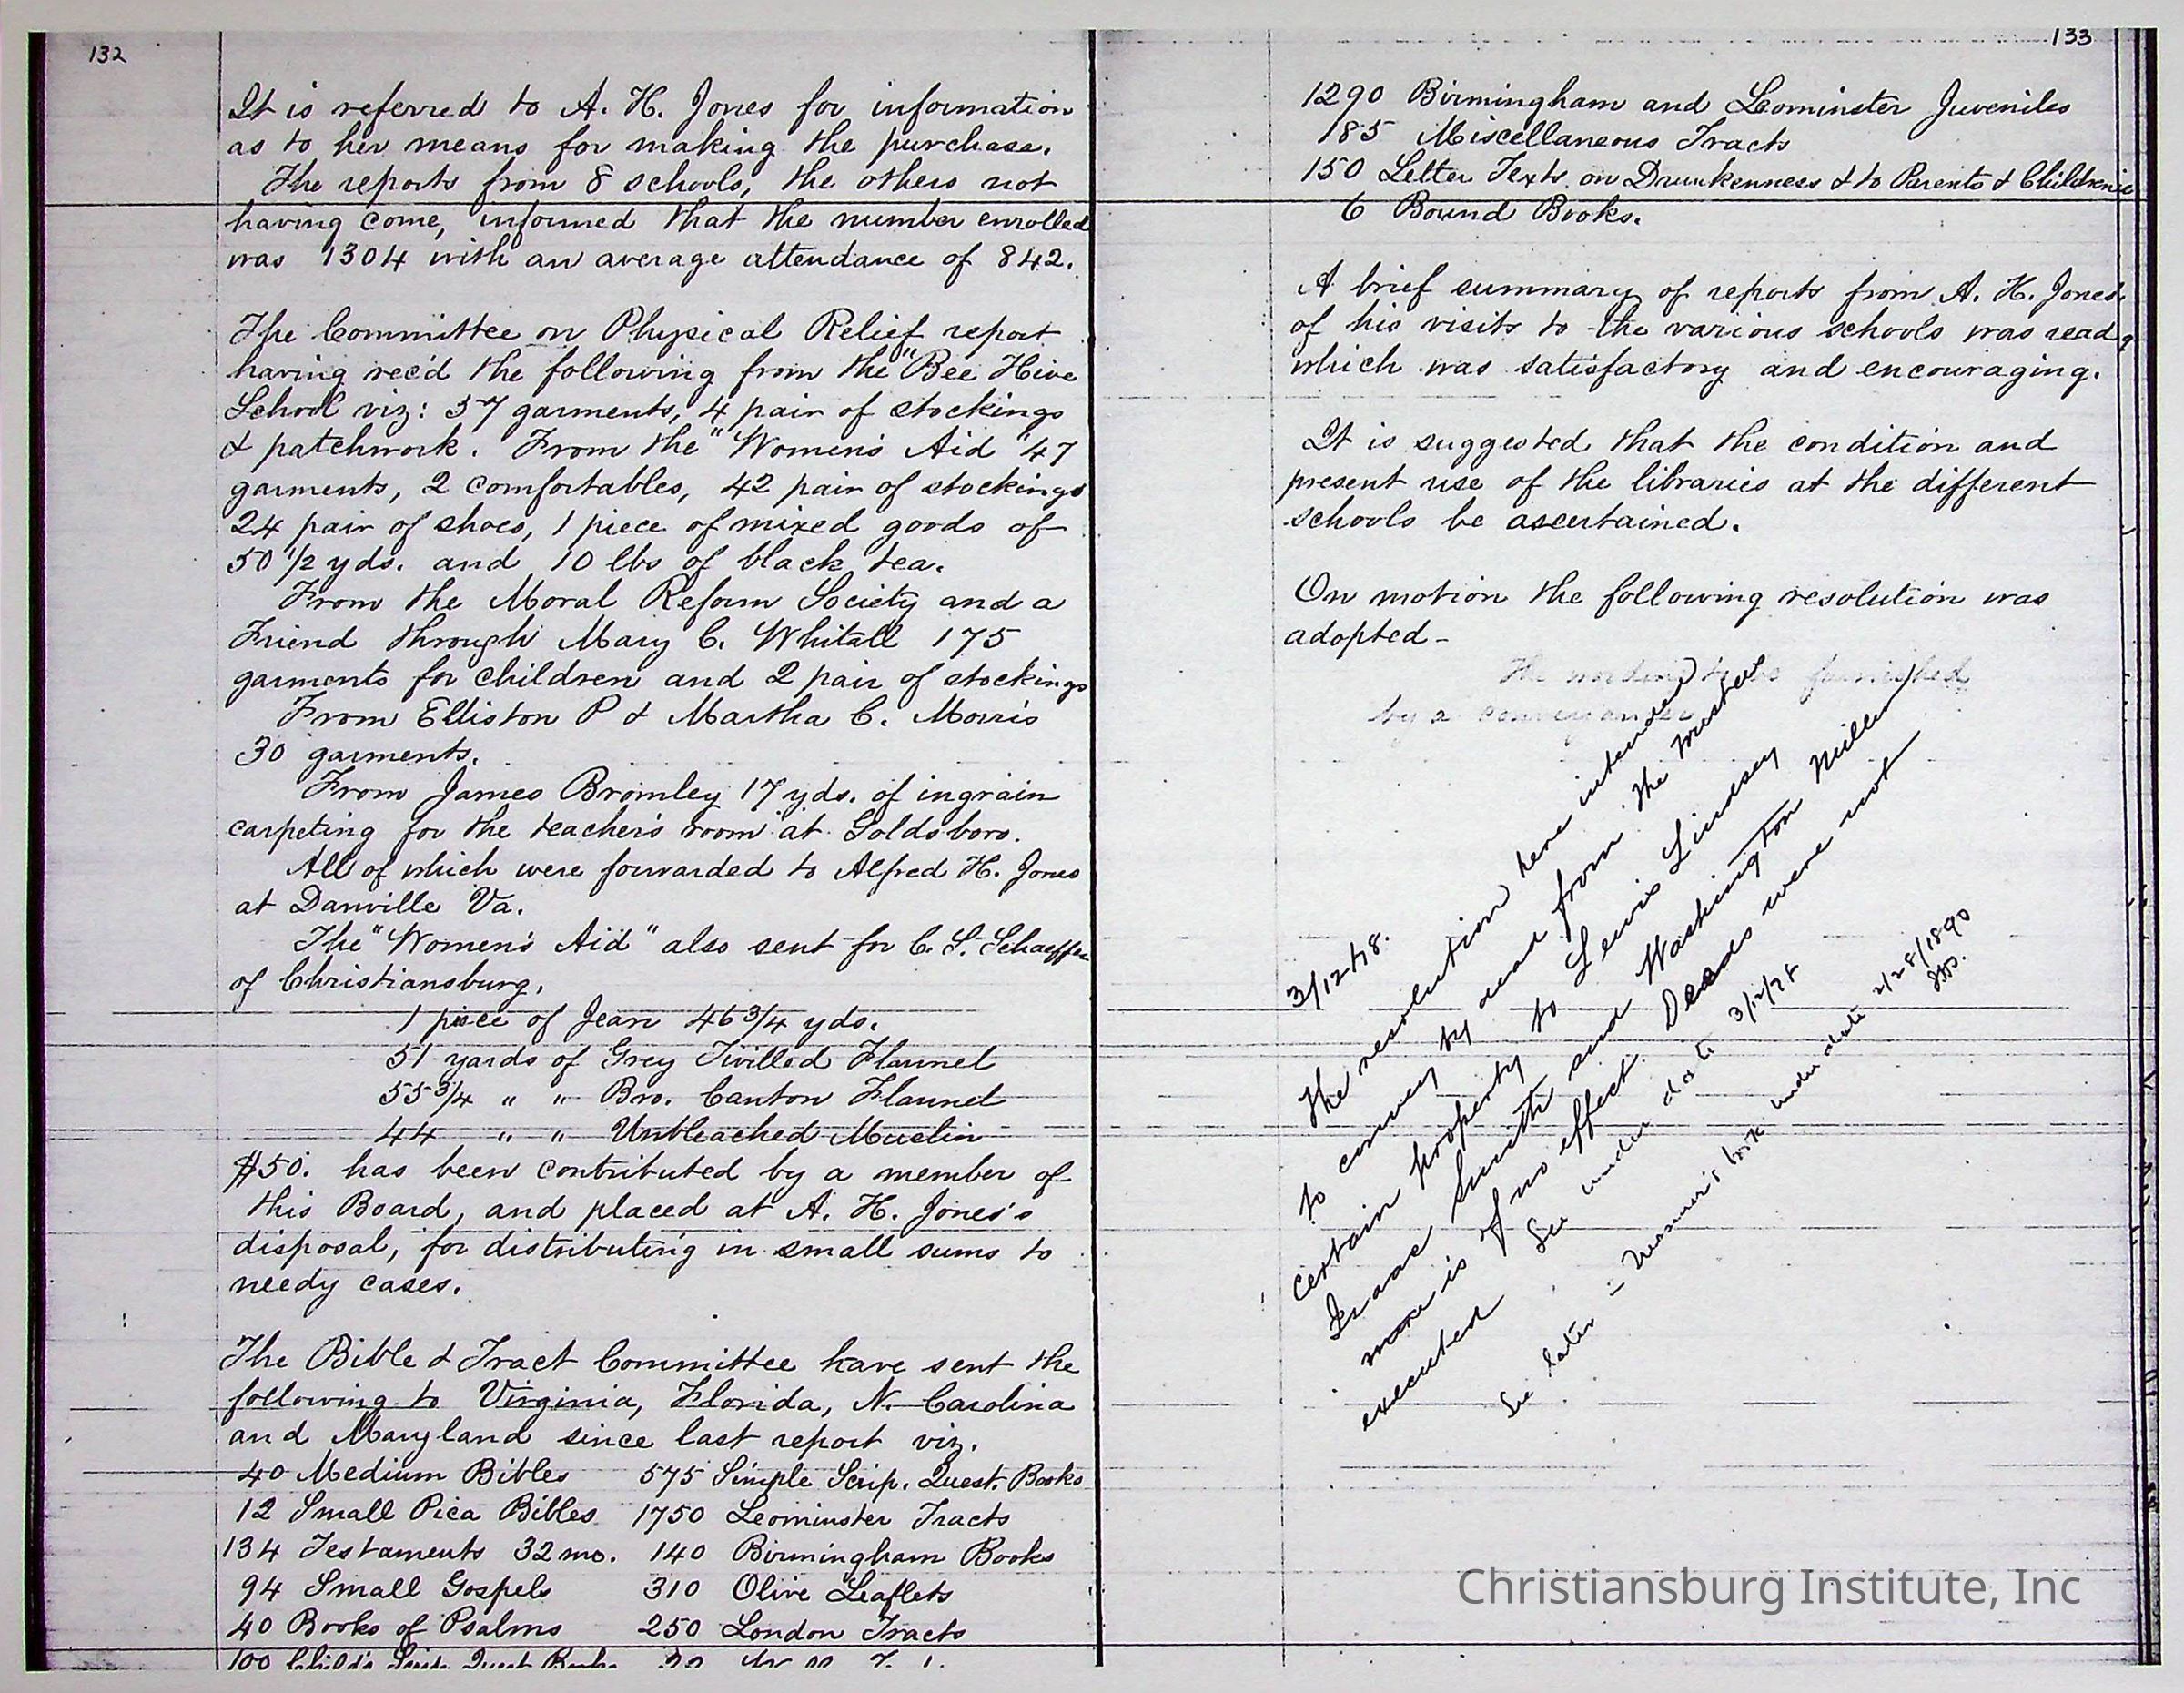 132
It is referred to A. H. Jones for information
as to her means for making the purchase.
The reports from 8 schools, the others not
having come, informed that the number enrolled
was 1304 with an average attendance of 842.
The Committee on Physical Relief report
having rec'd the following from the "Bee Hive
School viz: 57 garments, 4 pair of stockings
& patchwork. From the "Women's Aid" 47
garments, 2 comfortables, 42 pair of stockings
24 pair of shoes, 1 piece of mixed goods of
50 1/2 yds. and 10 lbs of black tea.
From the Moral Reform Society and a
Friend through Mary C. Whitall 175
garments for children and 2 pair of stockings
From Elliston P & Martha C. Morris
30 garments.
From James Bromley 17 yds. of ingrain
carpeting for the teacher's room at Goldsboro.
All of which were forwarded to Alfred H. Jones
at Danville Va.
The "Women's Aid" also sent for C. S. Schaeffer
of Christiansburg.
1 piece of Jean 46 3/4 yds.
51 yards of Grey Twilled Flannel
55 3/4 " " Bro. Canton Flannel
44 " " Unbleached Muslin
$50. has been contributed by a member of
this Board, and placed at A. H. Jones's
disposal, for distributing in small sums to
needy cases.
The Bible & Tract Committee have sent the
following to Virginia, Florida, N. Carolina
and Maryland since last report viz.
40 Medium Bibles 575 Simple Scrip. Quest. Books
12 Small Pica Bibles 1750 Leominster Tracts
134 Testaments 32 mo. 140 Birmingham Books
94 Small Gospels 310 Olive Leaflets
40 Books of Psalms 250 London Tracts
100 Child's Scrip. Quest Books
133
1290 Birmingham and Leominster Juveniles
185 Miscellaneous Tracts
150 Letter Texts on Drunkenness & to Parents & Children
6 Bound Books.
A brief summary of reports from A. H. Jones
of his visits to the various schools was read,
which was satisfactory and encouraging.
It is suggested that the condition and
present use of the libraries at the different
schools be ascertained.
On motion the following resolution was
adopted -
The wording to be furnished
by a conveyancer
3/12/78.
The resolution here intended
to convey by deed from the trustees
certain property to Lewis Lindsey
Isaac Smith and Washington Miller
more is of no effect. Deeds were not
executed See under date 3/12/78
See later - Treasurer's book under date 2/28/1890
Christiansburg Institute, Inc